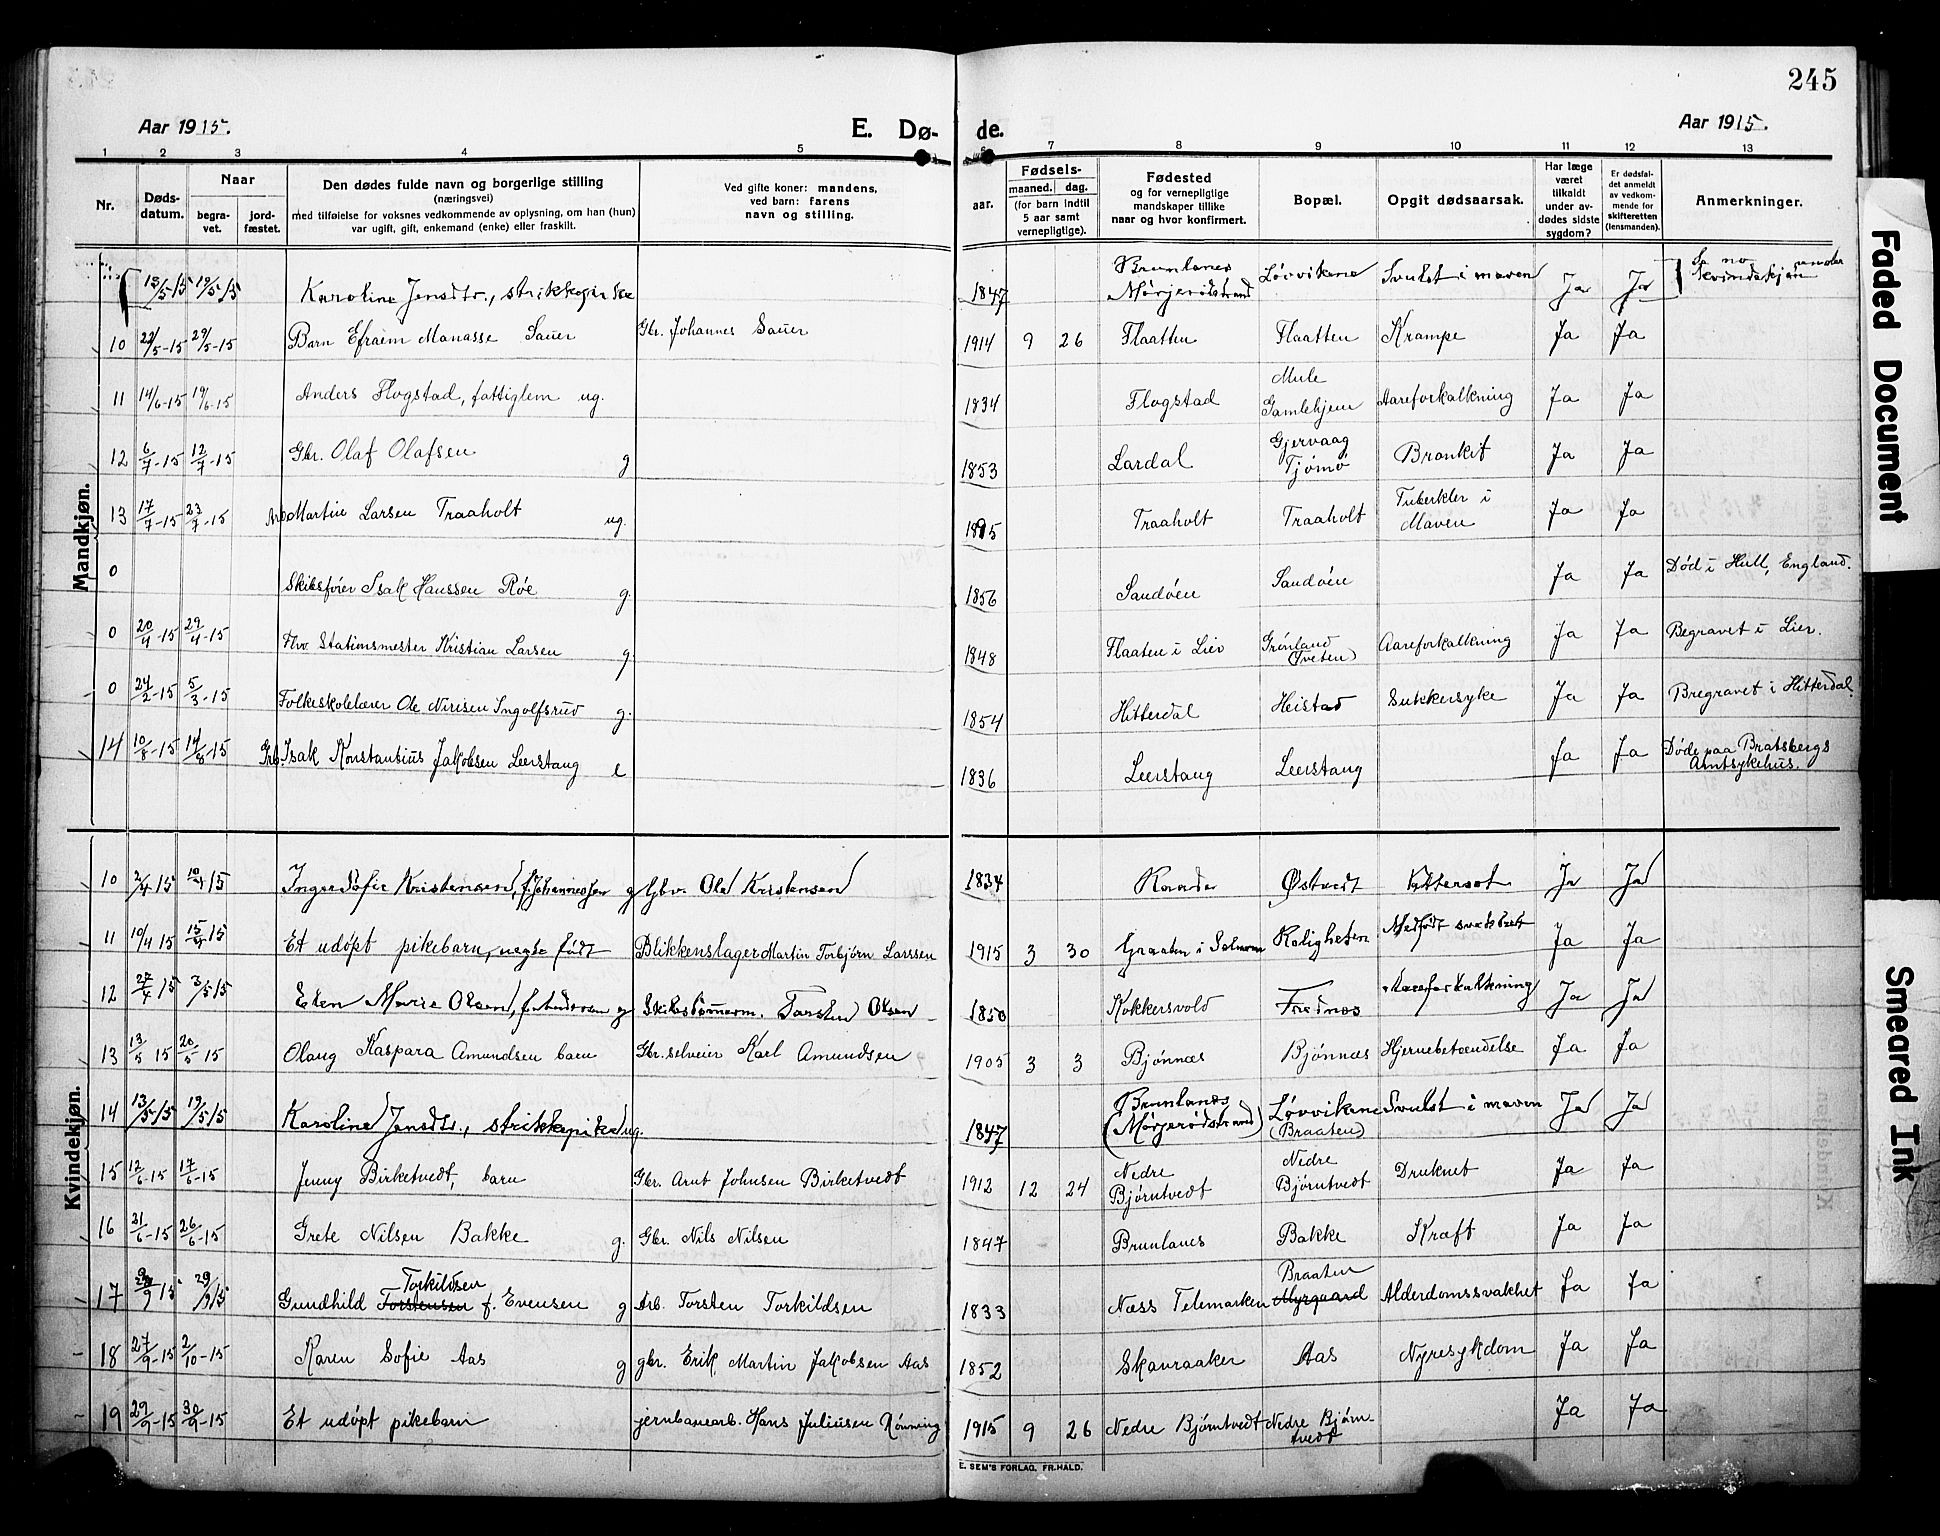 245
Aar 1915.
E. Dø-
de.
Aar 1915.
1 2 3 4 5 6 7 8 9 10 11 12 13
Nr.
Døds-
datum.
Naar
begra-
vet.
jord-
fæstet.
Den dødes fulde navn og borgerlige stilling
(næringsvei)
med tilføielse for voksnes vedkommende av oplysning, om han (hun)
var ugift, gift, enkemand (enke) eller fraskilt.
Ved gifte koner: mandens,
ved barn: farens
navn og stilling.
Fødsels-
aar.
maaned. dag.
(for barn indtil
5 aar samt
vernepligtige).
Fødested
og for vernepligtige
mandskaper tillike
naar og hvor konfirmert.
Bopæl.
Opgit dødsaarsak.
Har læge
været
tilkaldt
under av-
dødes sidste
sygdom?
Er dødsfal-
det anmeldt
av vedkom-
mende for
skifteretten
(lensmanden).
Anmerkninger.
Mandkjøn.
13/5 15 19/5 15 Karoline Jensdtr., strikkepike 1847 Brunlanes Mørjerødstrand Løvvikene Svulst i maven Ja Ja Se no under kvindekjøn
10 22/5-15 29/5-15 Barn Efraim Manasse Sauer Gbr. Johannes Sauer 1914 9 26 Flaatten Flaatten Krampe Ja Ja
11 14/6-15 19/6-15 Anders Flogstad, fattiglem ug. 1834 Flogstad Mule Gamlehjem Aareforkalkning Ja Ja
12 6/7-15 12/7-15 Gbr. Olaf Olafsen g 1853 Lardal Gjervaag Tjømø Bronkit Ja Ja
13 17/7-15 23/7-15 Arb Martin Larsen Traaholt ug. 1895 Traaholt Traaholt Tuberkler i Maven Ja Ja
0 Skibsfører Isak Hanssen Røe g. 1856 Sandøen Sandøen Ja Ja Død i Hull, England.
0 20/4-15 29/4-15 Fhv. Stationsmester Kristian Larsen g. 1848 Flaaten i Lier Grønland (Tveten) Aareforkalkning Ja Ja Begravet i Lier.
0 24/2-15 5/3-15 Folkeskolelærer Ole Nirisen Ingolfsrud g. 1854 Hitterdal Heistad Sukkersyke Ja Ja Bregravet i Hitterdal.
14 10/8-15 14/8-15 Gbr. Isak Konstantius Jakobsen Leerstang e 1836 Leerstang Leerstang Ja Ja Døde paa Bratsbergs Amtsykehus.
Kvindekjøn.
10 2/4 15 10/4 15 Inger Sofie Kristensen, f. Johannessen g Gbr. Ole Kristensen 1834 Østvedt Ja Ja
11 10/4 15 15/4 15 Et udøpt pikebarn, uegte født Blikkenslager Martin Torbjørn Larssen 1915 3 30 Graaten i Solum Roligheten Medfødt svakhet Ja Ja
12 27/4 15 3/5 15 Marie Olsen, g Skibstømmerm. Torsten Olsen 1850 Kokkersvold Frednes Aareforkalkning Ja Ja
13 13/5 15 20/5 15 Olaug Kaspara Amundsen barn Gbr. selveier Karl Amundsen 1905 3 3 Bjønnæs Bjønnæs Hjernebetændelse Ja Ja
14 13/5 15 19/5 15 Karoline Jensdtr., strikkepike ug. 1847 Brunlanes (Mørjerødstrand) Løvvikene (Braaten) Svulst i maven Ja Ja
15 12/6-15 17/6-15 Jenny Birketvedt, barn Gbr. Arnt Johnsen Birketvedt 1912 12 24 Nedre Bjørntvedt Nedre Bjørntvedt Druknet Ja Ja
16 21/6-15 26/6-15 Grete Nilsen Bakke g. Gbr. Nils Nilsen 1847 Brunlanes Bakke Kræft Ja Ja
17 9 15 29/9 15 Gundhild Torstensen Torkildsen f. Evensen g Arb. Torsten Torkildsen 1833 Næss Telemarken Myrgaard Braaten Alderdomssvakhet Ja Ja
18 27/9-15 2/10-15 Karen Sofie Aas g gbr. Erik Martin Jakobsen Aas 1852 Skauraaker Aas Nyresykdom Ja Ja
19 29/9-15 30/9-15 Et udøpt pikebarn jernbanearb. Hans Juliusen Rønning 1915 9 26 Nedre Bjørntvedt Nedre Bjørntvedt Ja Ja
E. SEM'S FORLAG, FR.HALD.
Faded Document
Smeared Ink